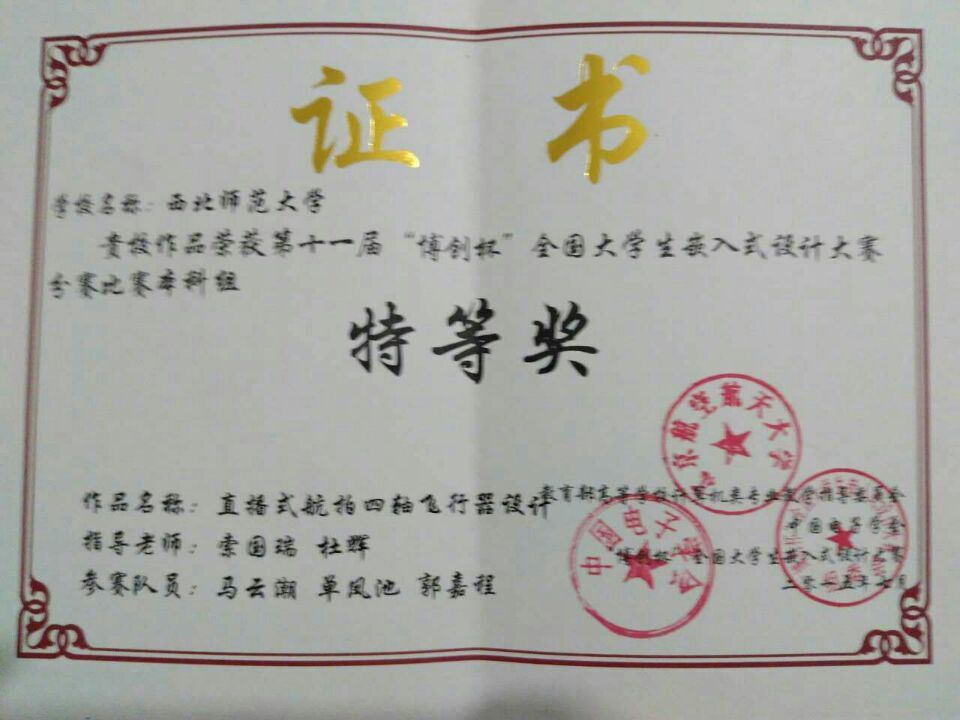 证书
学校名称：西北师范大学
贵校作品荣获第十一届“博创杯”全国大学生嵌入式设计大赛
分赛比赛本科组
特等奖
作品名称：直播式航拍四轴飞行器设计
指导老师：索国瑞 杜辉
参赛队员：马云潮 单凤池 郭嘉程
教育部高等学校计算机类专业教学指导委员会
中国电子学会
博创杯 全国大学生嵌入式设计大赛
二零一五年七月
京航空航天大学
中国电子学会